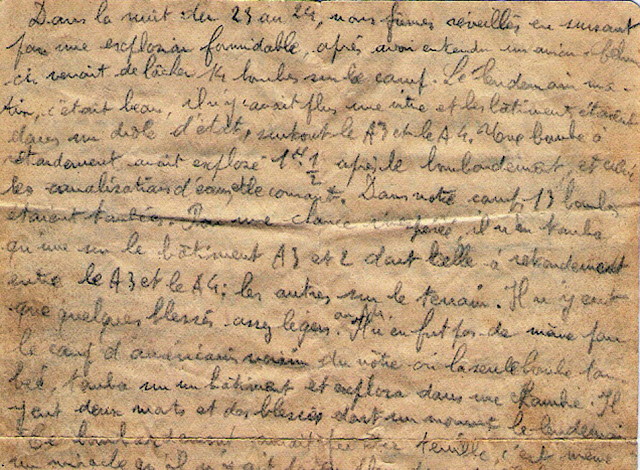 Dans la nuit du 23 au 24, nous fûmes réveillés en sursaut
par une explosion formidable, après avoir entendu un avion. Celui
ci venait de lâcher 14 bombes sur le camp. Le lendemain ma-
tin, c'était beau, il n'y avait plus une vitre et les bâtiments étaient
dans un drôle d'état, surtout le A3 et le A4. Une bombe à
retardement avait explosé 1h 1/2 après le bombardement, et
les canalisations d'eau, et le courant. Dans notre camp 13 bombes
étaient tombées. Par une chance inespérée, il n'en tomba
qu'une sur le bâtiment A3 et 2 dont celle à retardement
entre le A3 et le A4: les autres sur le terrain. Il n'y eut
que quelques blessés assez légers. Il n'en fut pas de même pour
le camp d'américains voisin du nôtre où la seule bombe tom
bée, tomba sur un bâtiment et explosa dans une chambre. Il
y eut deux morts et des blessés dont un mourut le lendemain
Ce bombardement terrible, c'est même
un miracle qu'il n'y ait